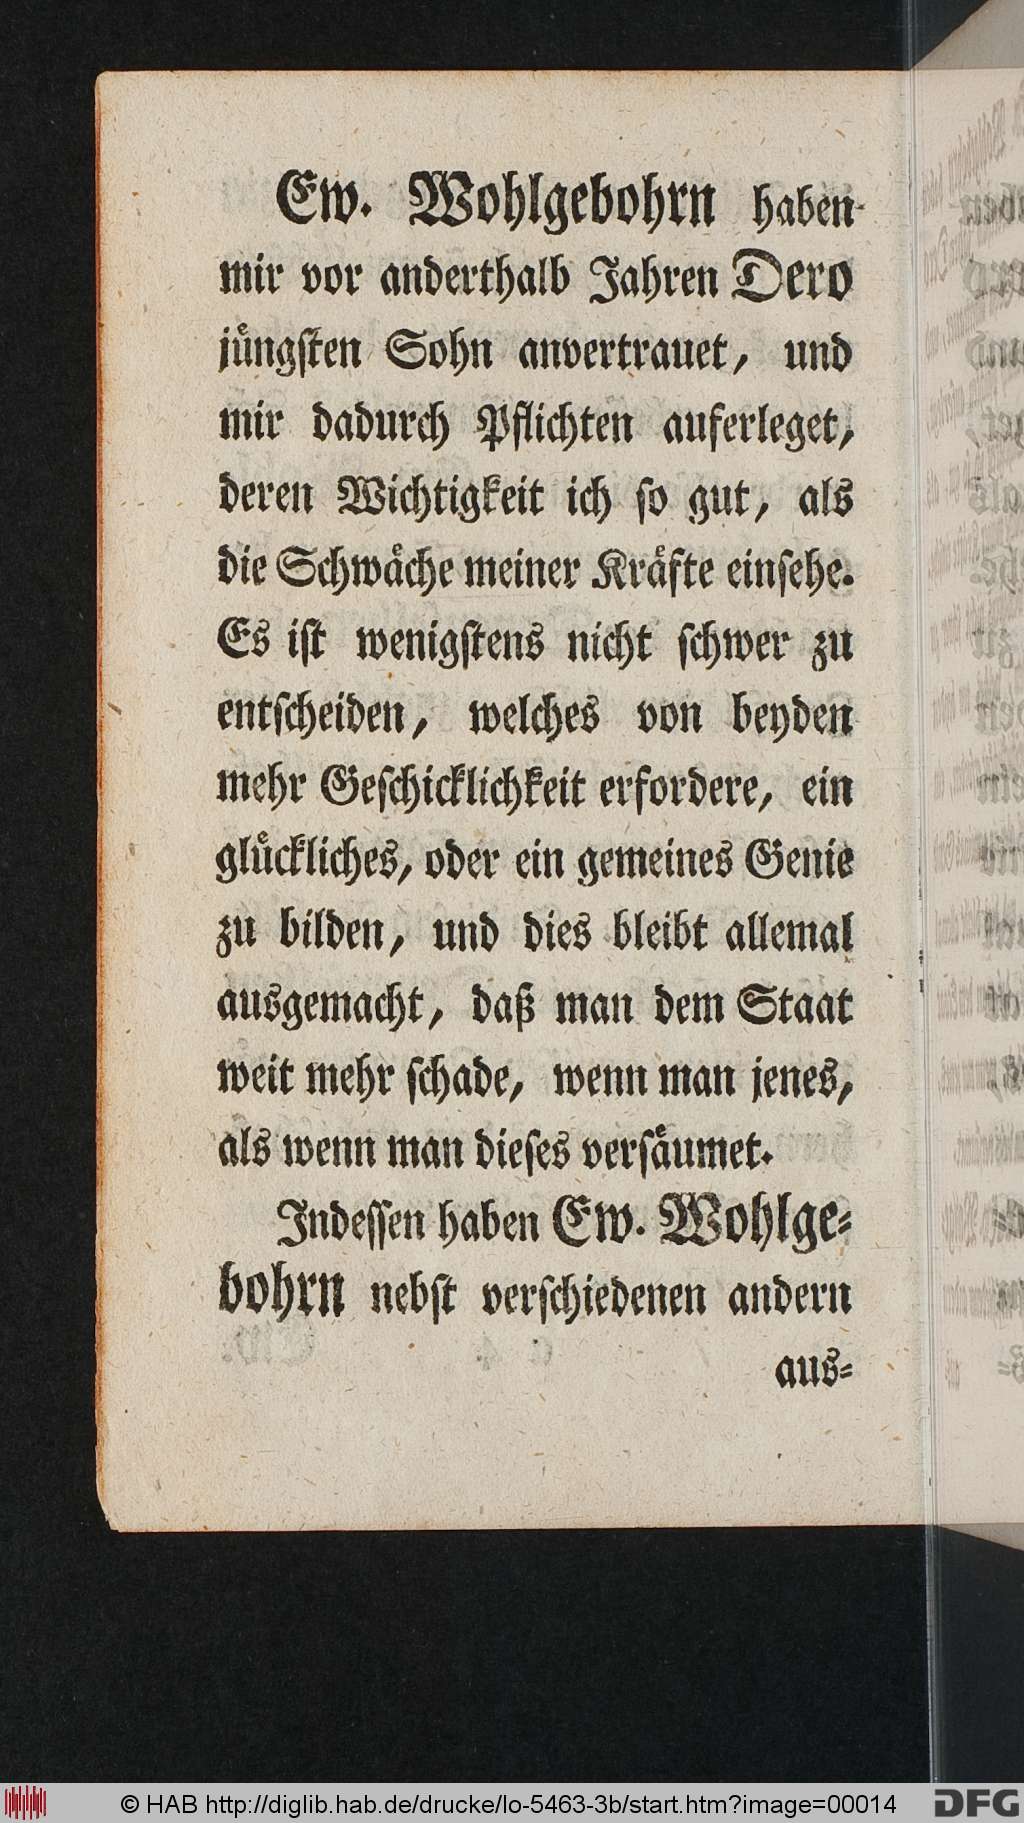 Ew. Wohlgebohrn haben
mir vor anderthalb Jahren Dero
jüngſten Sohn anvertrauet, und
mir dadurch Pflichten auferleget,
deren Wichtigkeit ich ſo gut, als
die Schwäche meiner Kräfte einſehe.
Es iſt wenigſtens nicht ſchwer zu
entſcheiden, welches von beyden
mehr Geſchicklichkeit erfordere, ein
glückliches, oder ein gemeines Genie
zu bilden, und dies bleibt allemal
ausgemacht, daß man dem Staat
weit mehr ſchade, wenn man jenes,
als wenn man dieſes verſäumet.
Indeſſen haben Ew. Wohlge-
bohrn nebſt verſchiedenen andern
aus-
© HAB http://diglib.hab.de/drucke/lo-5463-3b/start.htm?image=00014
DFG